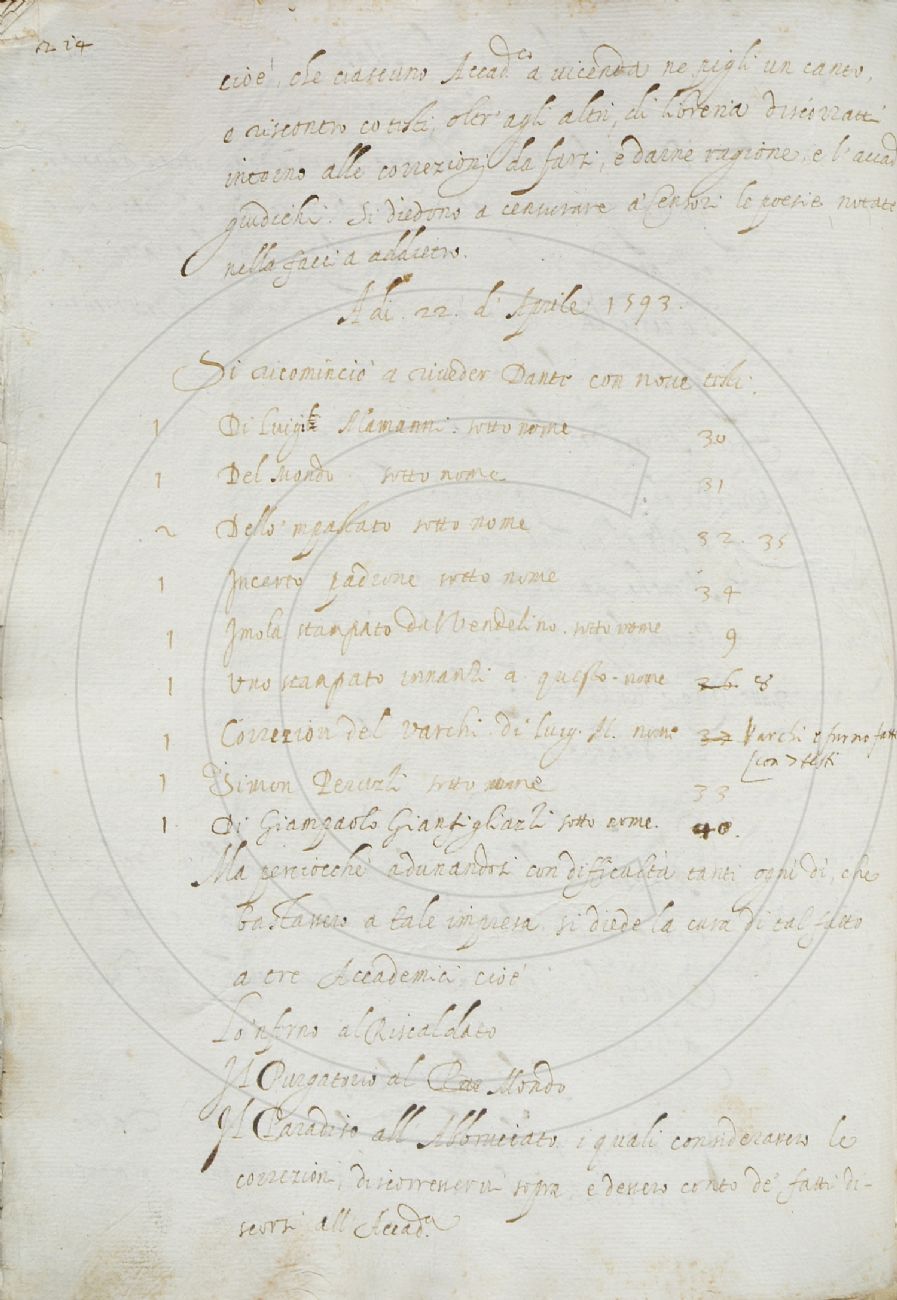 214
cioè, che ciascuno Accad.co a vicenda ne pigli un canto,
e riscontro co testi, oltr'agli altri, di libreria discorratti
intorno alle correzioni da farsi, e darne ragione, e l'accad
giudichi. Si diedono a censurare a' Censori le poesie notate
nella faccia addietro.
A di 22. d'Aprile 1593.
Si ricominciò a riveder Dante con nove testi.
1 Di Luigi Alamanni. sotto nome 30
1 Del Mondo. sotto nome 31
2 Dello 'mpastato sotto nome 32. 35
1 Incerto padrone sotto nome 34
1 Imola stampato da Vendelino. sotto nome 9
1 Uno stampato innanzi a questo. nome 36. 8
1 Correzion del Varchi. di Luig. Al. nome 37 Varchi e furno fatte
con 7 testi
1 Di Simon Peruzzi sotto nome 33
1. Di Giampaolo Gianfigliazzi sotto nome. 40.
Ma perciocchè adunandosi con difficultà tanti ogni dì, che
bastassero a tale impresa si diede la cura di tal fatto
a tre Accademici, cioè
Lo 'nferno al Riscaldato
Il Purgatorio al Mondo
Il Paradiso all'Abbruciato i quali considerassero le
correzioni, discorresservi sopra, e dessero conto de' fatti di-
scorsi all'Accad.a